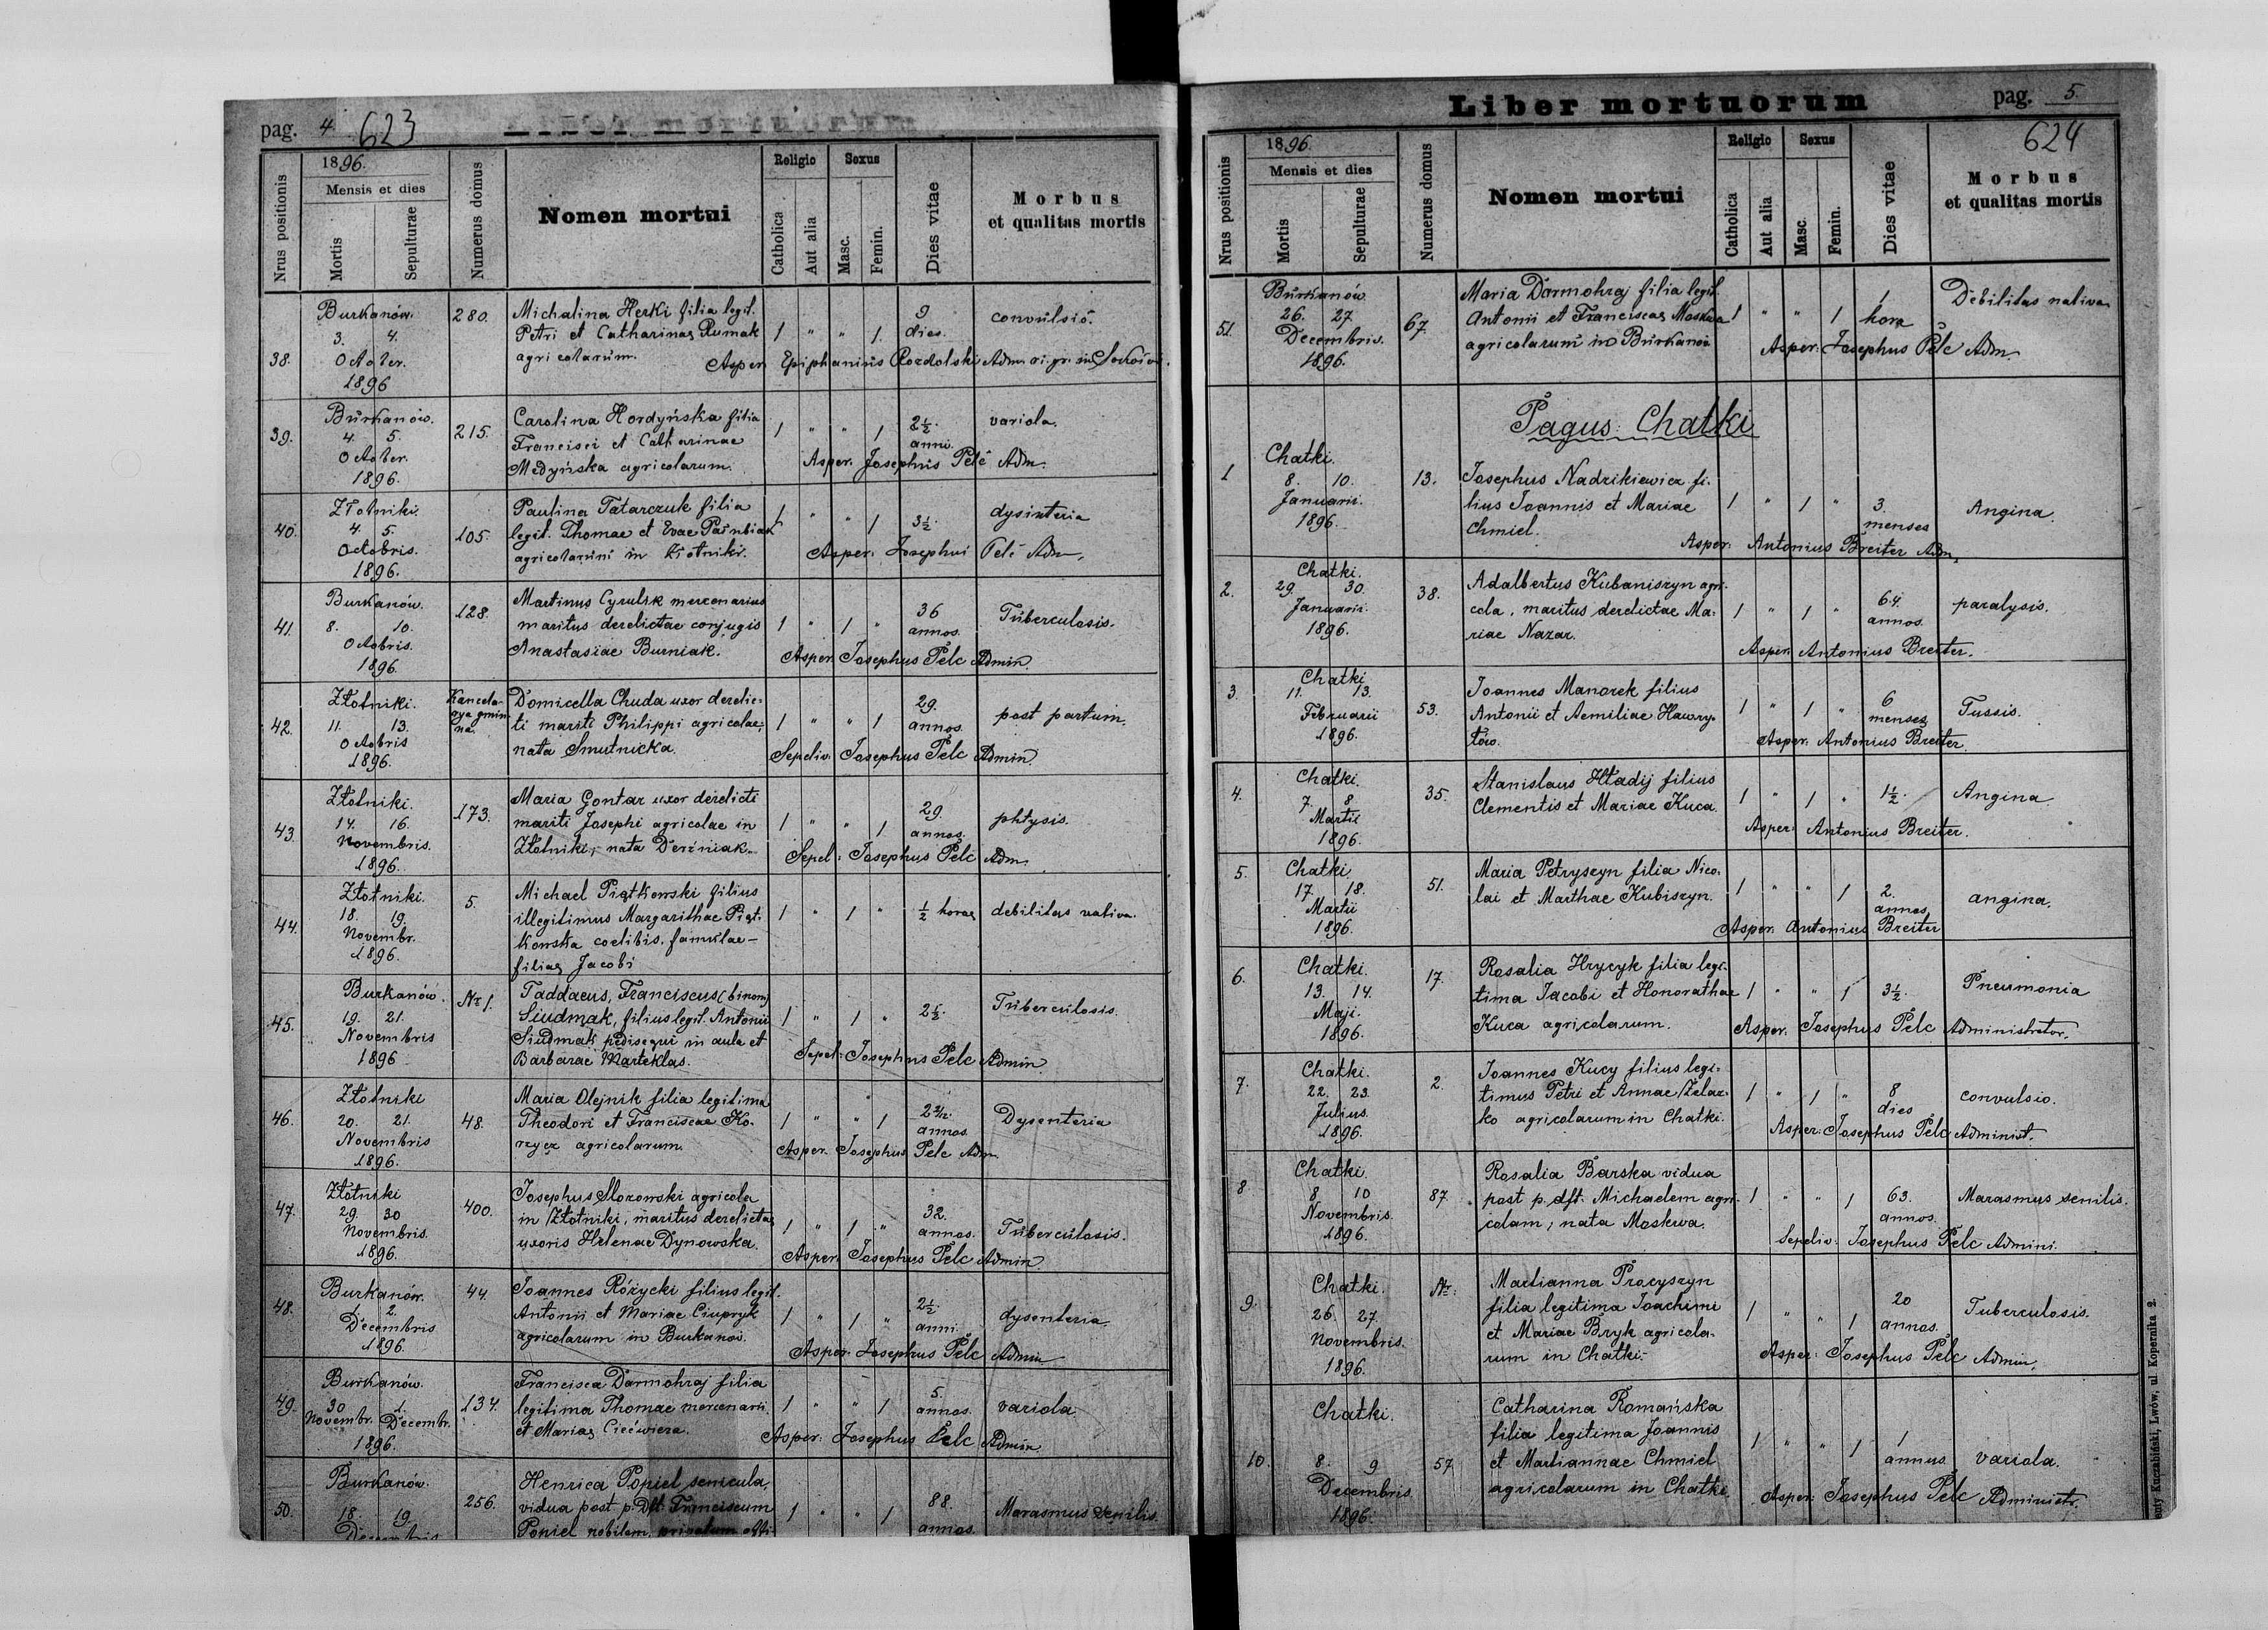 pag. 4. 623
Liber mortuorum
Nrus positionis
1896.
Mensis et dies
Mortis
Sepulturae
Numerus domus
Nomen mortui
Religio
Catholica
Aut alia
Sexus
Masc.
Femin.
Dies vitae
Morbus
et qualitas mortis
38.
Burkanów.
3. 4.
October.
1896
280.
Michalina Herki filia legit.
Petri et Catharinae Rumak
agricolarum.
1 " " 1
9
dies.
convulsio.
Asper. Epiphanius Rozdolski Adm. ri. gr. in
39.
Burkanów.
4. 5.
October.
1896.
215.
Carolina Hordyńska filia
Francisci et Catharinae
Medyńska agricolarum.
1 " " 1
2½.
anni.
variola.
Asper. Josephus Pelc Adm.
40.
Złotniki.
4. 5.
Octobris.
1896.
105.
Paulina Tatarczuk filia
legit. Thomae et Evae
agricolarum in Złotniki.
1 " " 1
3½.
dysinteria
Asper. Josephus Pelc Adm.
41.
Burkanów.
8. 10.
Octobris.
1896.
128.
Martinus Cyrulik mercenarius
maritus derelictae conjugis
Anastasiae Burniak.
1 " 1 "
36
annos.
Tuberculosis.
Asper. Josephus Pelc Admin.
42.
Złotniki.
11. 13.
Octobris
1896.
Kancela-
rya gmin-
na.
Domicella Chuda uxor derelic-
ti mariti Philippi agricolae,
nata Smutnicka.
1 " " 1
29.
annos.
post partum.
Sepeliv. Josephus Pelc Admin.
43.
Złotniki.
14. 16.
Novembris.
1896.
173.
Maria Gontar uxor derelicti
mariti Josephi agricolae in
Złotniki, nata Derżniak.
1 " " 1
29.
annos.
phtysis.
Sepel. Josephus Pelc Adm.
44.
Złotniki.
18. 19.
Novembr.
1896.
5.
Michael Piątkowski filius
illegitimus Margarithae Piąt-
kowska coelibis, famulae-
filiae Jacobi
1 " 1 "
½ horae
debilitas nativa.
45.
Burkanów.
19. 21.
Novembris
1896
Nr 1.
Taddaeus, Franciscus (binom)
Siudmak, filius legit. Antonii
Siudmak pedisequi in aula et
Barbarae Marteklas.
1 " 1 "
2½.
Tuberculosis.
Sepel. Josephus Pelc Admin
46.
Złotniki
20. 21.
Novembris
1896.
48.
Maria Olejnik filia legitima
Theodori et Franciscae Ko-
rzycz agricolarum.
1 " " 1
annos.
Dysenteria
Asper. Josephus Pelc Adm.
47.
Złotniki
29. 30
Novembris.
1896.
400.
Josephus Slozowski agricola
in Złotniki, maritus derelictae
uxoris Helenae Dynowska.
1 " 1 "
32.
annos.
Tuberculosis.
Asper. Josephus Pelc Admin.
48.
Burkanów.
1. 2.
Decembris
1896.
44.
Joannes Różycki filius legit.
Antonii et Mariae Ciupryk
agricolarum in Burkanów.
1 " 1 "
2½.
anni.
dysenteria
Asper. Josephus Pelc Admin
49.
Burkanów.
30 1.
Novembr. Decembr.
1896.
134.
Francisca Darmohraj filia
legitima Thomae mercenarii
et Mariae Ciećwierz.
1 " " 1
5.
annos.
variola.
Asper. Josephus Pelc Admin
50.
Burkanów.
18. 19.
Decembris
256.
Henrica Popiel senicula,
vidua post p. Dft. Franciscum
Popiel nobilem, privatum
1 " " 1
88.
annos.
Marasmus senilis.
Liber mortuorum
pag. 5.
624
Nrus positionis
1896.
Mensis et dies
Mortis
Sepulturae
Numerus domus
Nomen mortui
Religio
Catholica
Aut alia
Sexus
Masc.
Femin.
Dies vitae
Morbus
et qualitas mortis
51.
Burkanów.
26. 27.
Decembris.
1896.
67.
Maria Darmohraj filia legit.
Antonii et Franciscae Moskwa
agricolarum in Burkanów
1 " " 1
1
hora
Debilitas nativa.
Asper. Josephus Pelc Adm.
Pagus: Chatki
1
Chatki.
8. 10.
Januarii.
1896.
13.
Josephus Nadzikiewicz fi-
lius Joannis et Mariae
Chmiel.
1 " 1 "
3.
menses
Angina.
Asper. Antonius Breiter Adm.
2.
Chatki.
29. 30.
Januarii.
1896.
38.
Adalbertus Kubaniszyn agri-
cola, maritus derelictae Ma-
riae Nazar.
1 " 1 "
64.
annos.
paralysis.
Asper. Antonius Breiter.
3
Chatki
11. 13.
Februarii
1896.
53.
Joannes Manorek filius
Antonii et Aemiliae Hawry-
low.
1 " 1 "
6
menses
Tussis.
Asper. Antonius Breiter.
4.
Chatki.
7. 8
Martii
1896.
35.
Stanislaus Hładij filius
Clementis et Mariae Kuca.
1 " 1 "
1½.
Angina
Asper. Antonius Breiter.
5.
Chatki
17. 18.
Martii
1896.
51.
Maria Petryszyn filia Nico-
lai et Marthae Kubiszyn.
1 " " 1
2.
annos
angina.
Asper. Antonius Breiter
6.
Chatki.
13. 14.
Maji.
1896.
17.
Rosalia Hrycyk filia legi-
tima Jacobi et Honorathae
Kuca agricolarum.
1 " " 1
3½.
Pneumonia
Asper. Josephus Pelc Administrator.
7.
Chatki.
22. 23.
Julius.
1896.
2.
Joannes Kucy filius legi-
timus Petri et Annae Żelaz-
ko agricolarum in Chatki.
1 " 1 "
8
dies
convulsio.
Asper. Josephus Pelc Administ.
8
Chatki.
8 10
Novembris.
1896.
87.
Rosalia Barska vidua
post p. dft. Michaelem agri-
colam; nata Moskwa.
1 " " 1
63.
annos.
Marasmus senilis.
Sepeliv. Josephus Pelc Admini.
9.
Chatki.
26. 27.
Novembris.
1896.
Nr.
Martianna Procyszyn
filia legitima Joachimi
et Mariae Bryk agricola-
rum in Chatki.
1 " " 1
20
annos.
Tuberculosis.
Asper. Josephus Pelc Admin.
10.
Chatki.
8. 9
Decembris
1896.
57
Catharina Romańska
filia legitima Joannis
et Martiannae Chmiel
agricolarum in Chatki.
1 " " 1
1
annus
variola.
Asper. Josephus Pelc Administr.
Kuczabiński, Lwów, ul. Kopernika 2.